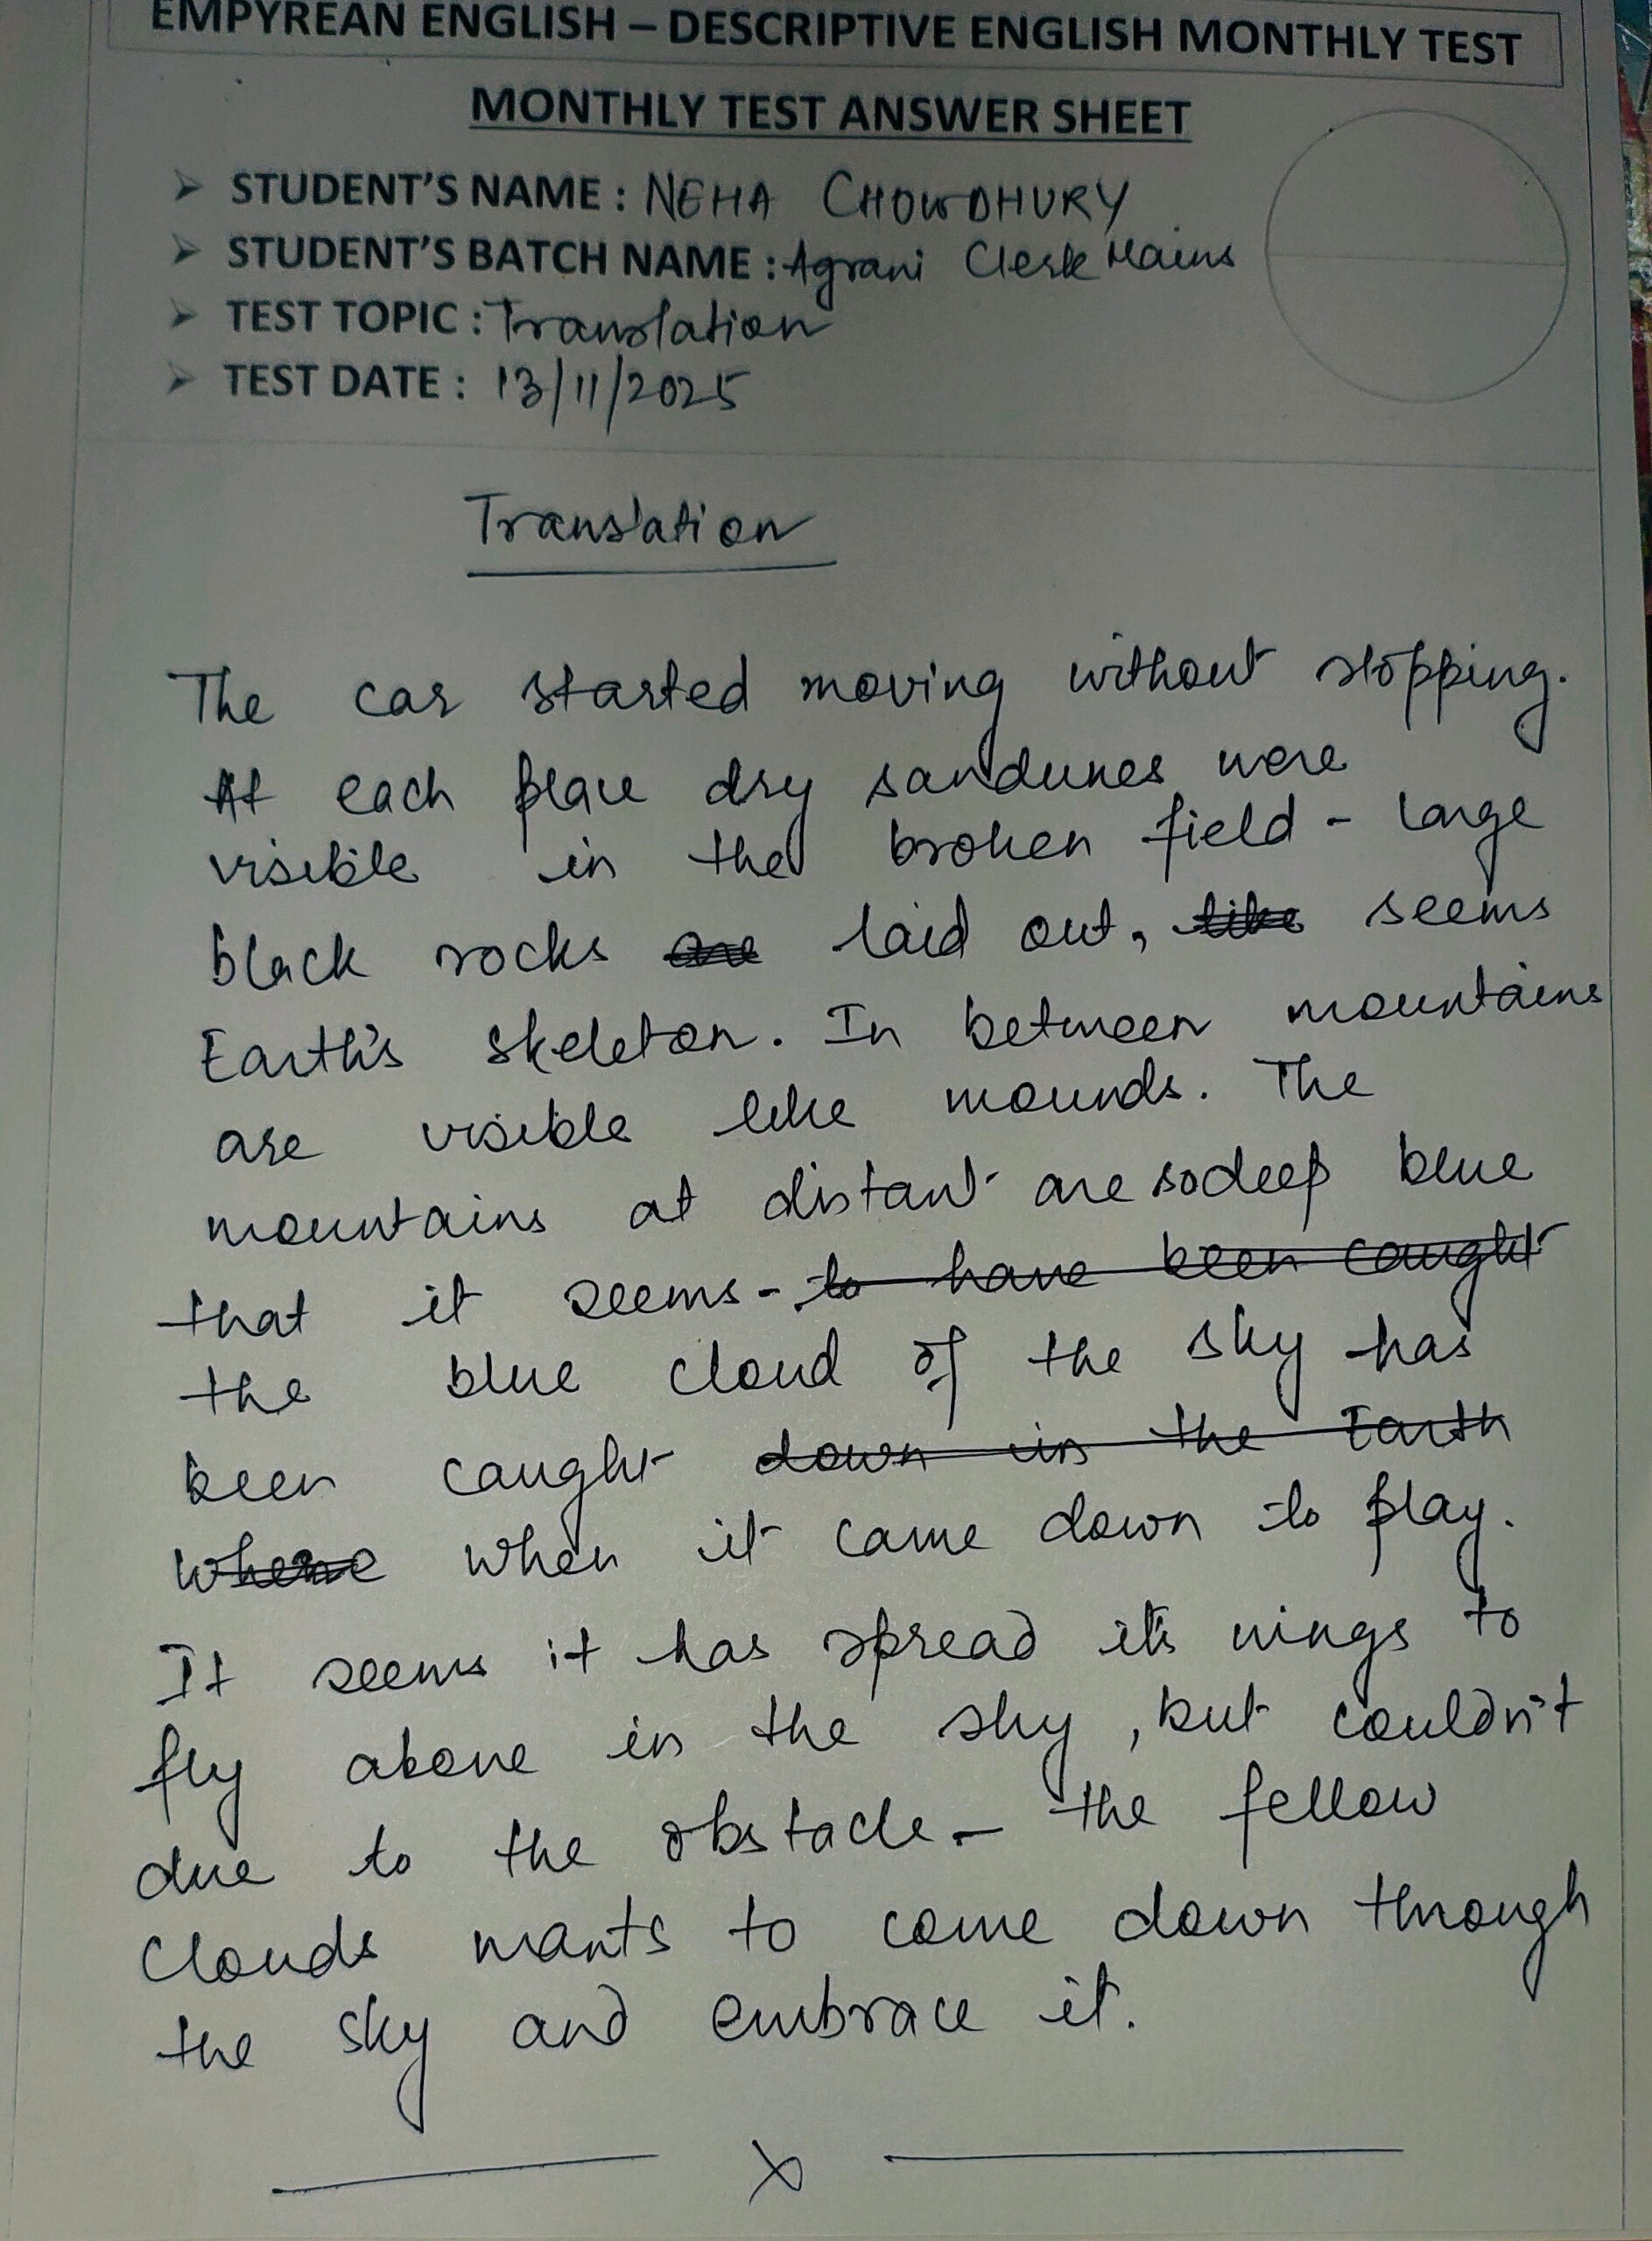 EMPYREAN ENGLISH – DESCRIPTIVE ENGLISH MONTHLY TEST
MONTHLY TEST ANSWER SHEET
➢ STUDENT'S NAME : NEHA CHOWDHURY
➢ STUDENT'S BATCH NAME : Agrani Clerk Mains
➢ TEST TOPIC : Translation
➢ TEST DATE : 13/11/2025
Translation
The car started moving without stopping.
At each place dry sandunes were
visible in the broken field - large
black rocks are laid out, like seems
Earth's skeleton. In between mountains
are visible like mounds. The
mountains at distant are so deep blue
that it seems - to have been caught
the blue cloud of the sky has
been caught down in the Earth
where when it came down to play.
It seems it has spread its wings to
fly above in the sky, but couldn't
due to the obstacle - the fellow
clouds wants to come down through
the sky and embrace it.
X